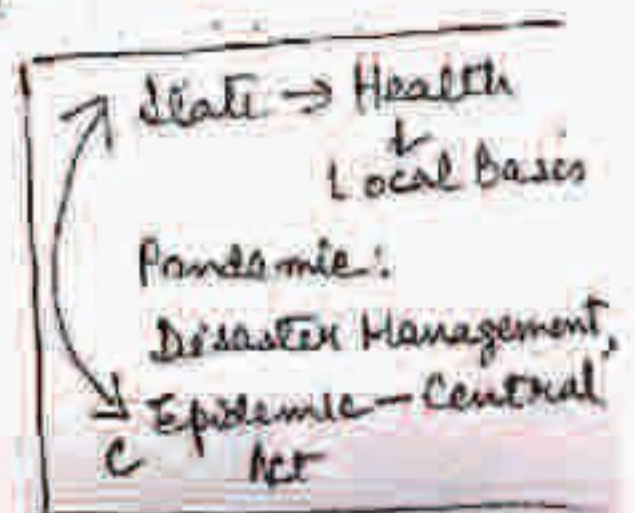 State → Health
↓
Local Bases
Pandemic:
Disaster Management,
Epidemic - Central
C Act